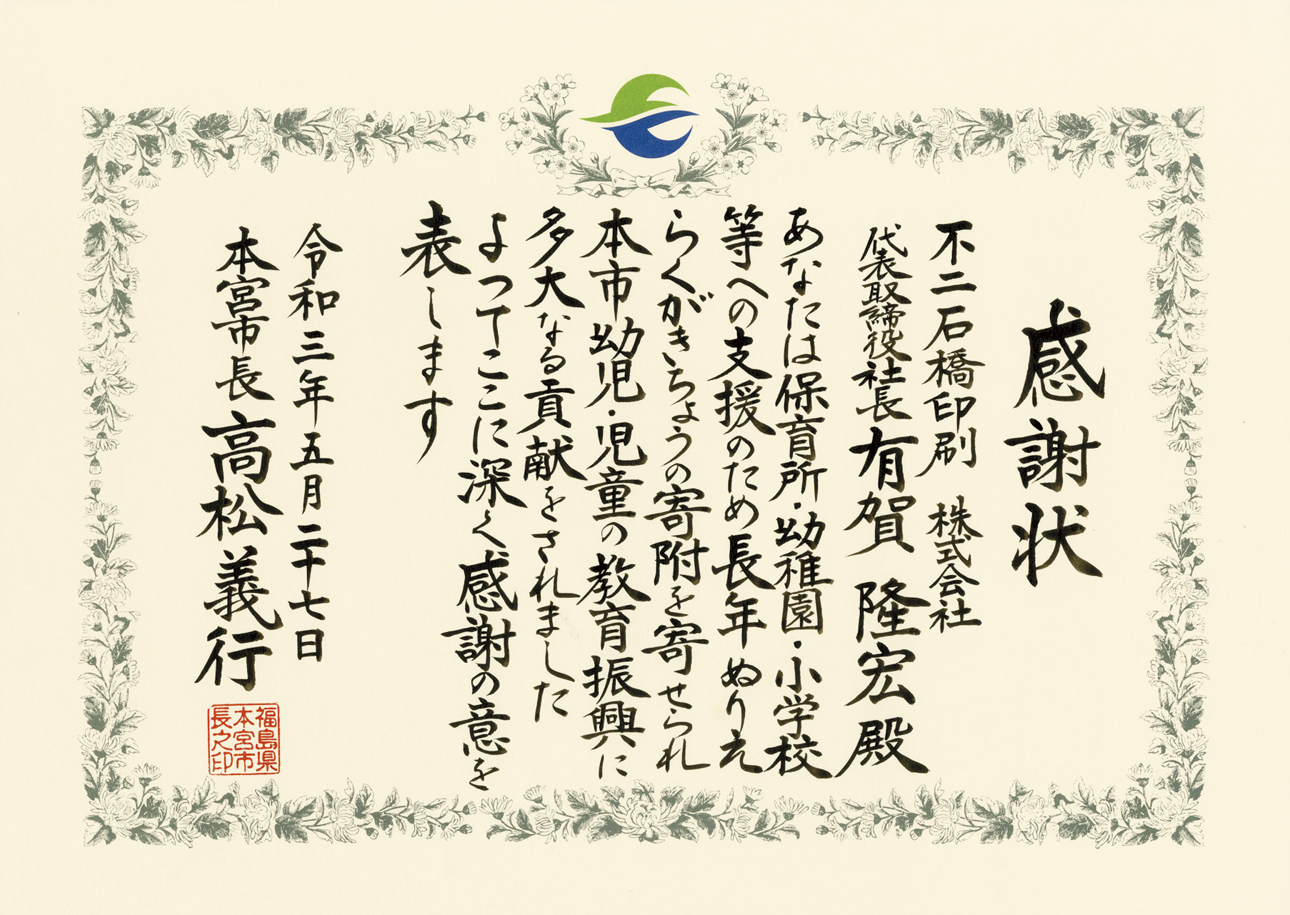 感謝状
不二石橋印刷　株式会社
代表取締役社長　有賀　隆宏　殿
あなたは保育所・幼稚園・小学校
等への支援のため長年ぬりえ
らくがきちょうの寄附を寄せられ
本市幼児・児童の教育振興に
多大なる貢献をされました
よってここに深く感謝の意を
表します
令和三年五月二十七日
本宮市長　高松義行
福島県
本宮市
長之印